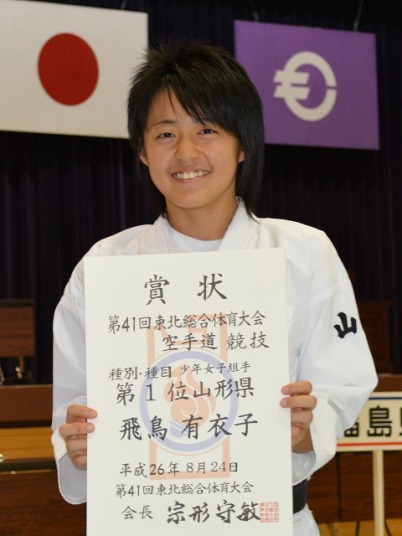 賞状
第41回東北総合体育大会
空手道 競技
種別・種目 少年女子組手
第1位山形県
飛鳥 有衣子
平成26年8月24日
第41回東北総合体育大会
会長 宗形守敏
山
福島県